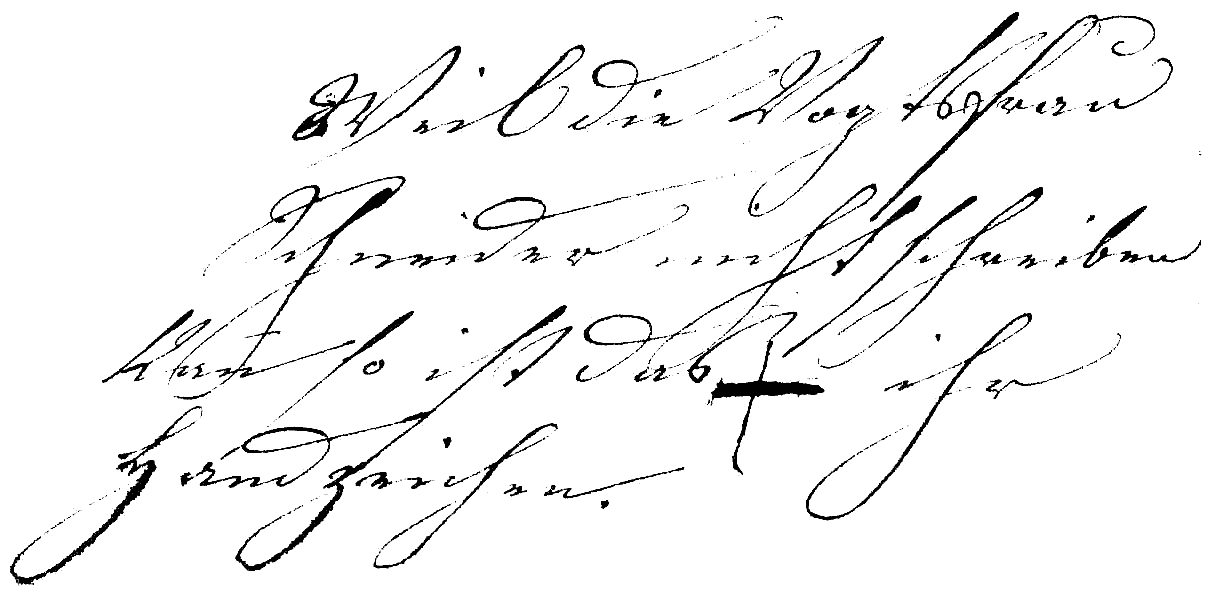 Weil die Vogtsfrau
Schneider nicht schreiben
kan so ist das + ihr
Handzeichen.